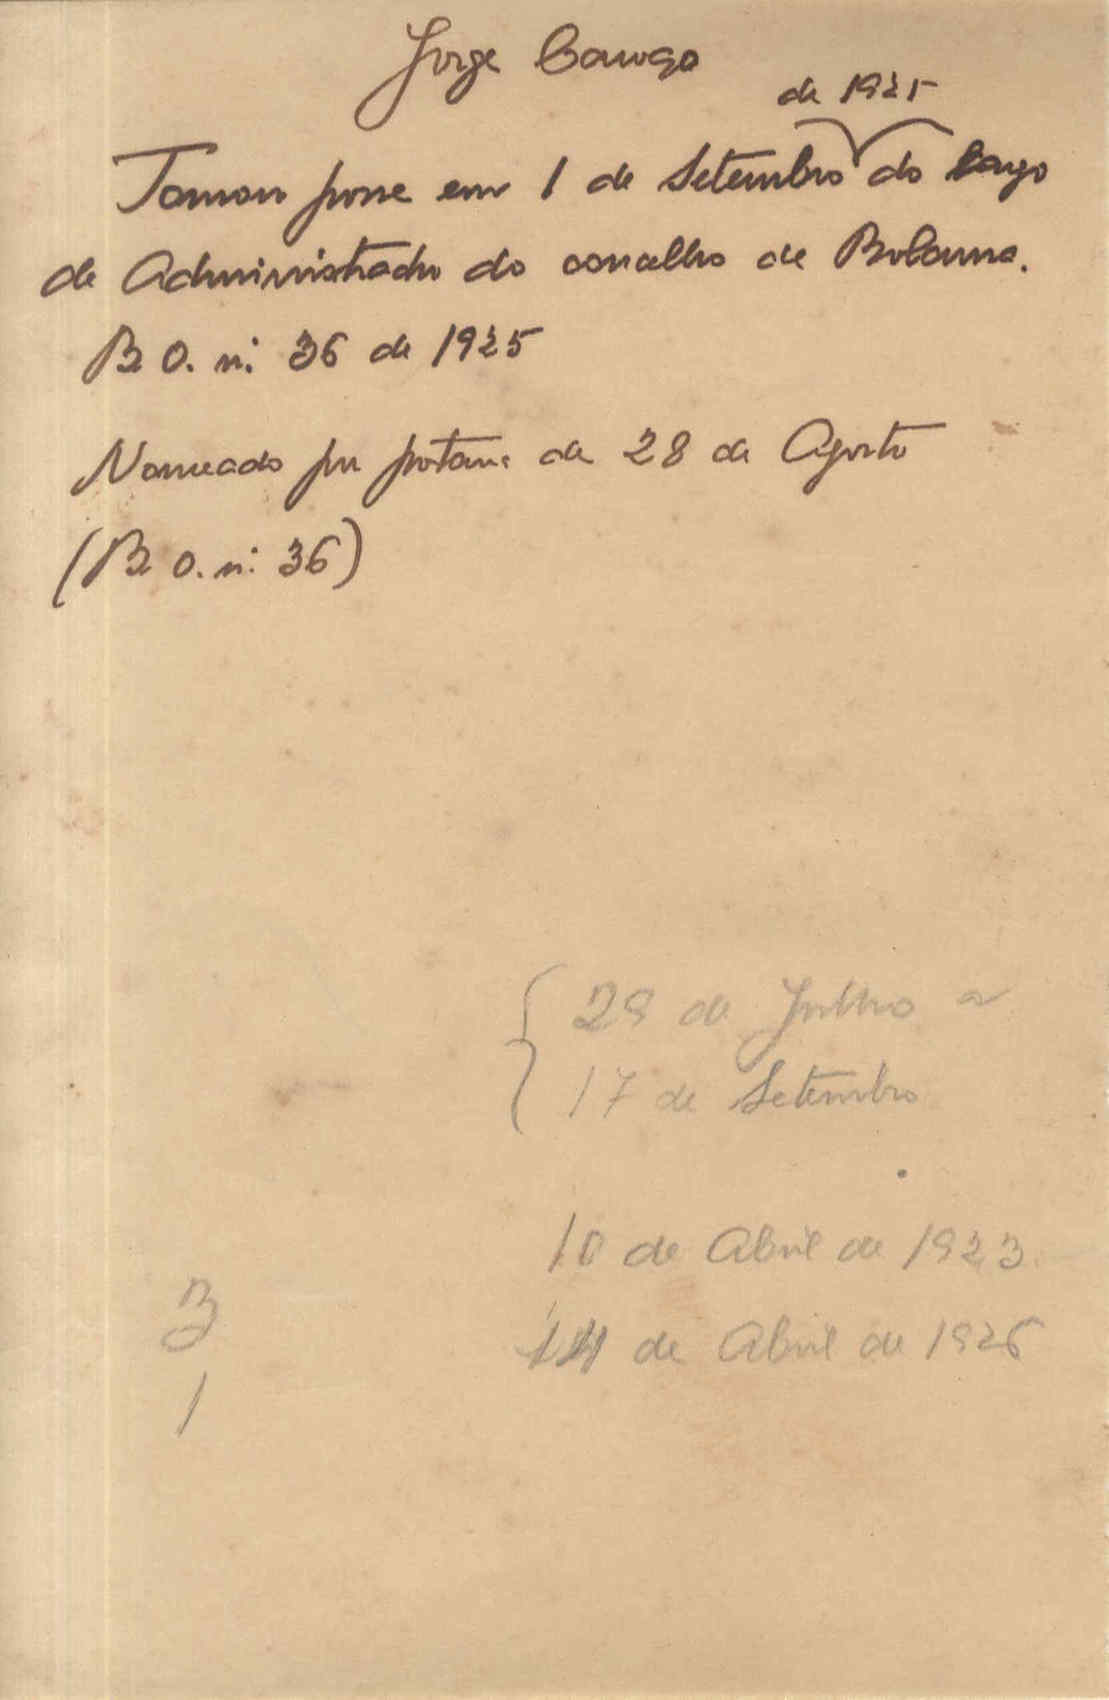 Jorge Caroço
de 1925
Tomou posse em 1 de Setembro do cargo
de Administrador do concelho de Bolama.
B O. nº 36 de 1925
Nomeado por portaria de 28 de Agosto
(B O. nº 36)
29 de Julho a
17 de Setembro
10 de Abril de 1923
14 de Abril de 1926
3
1